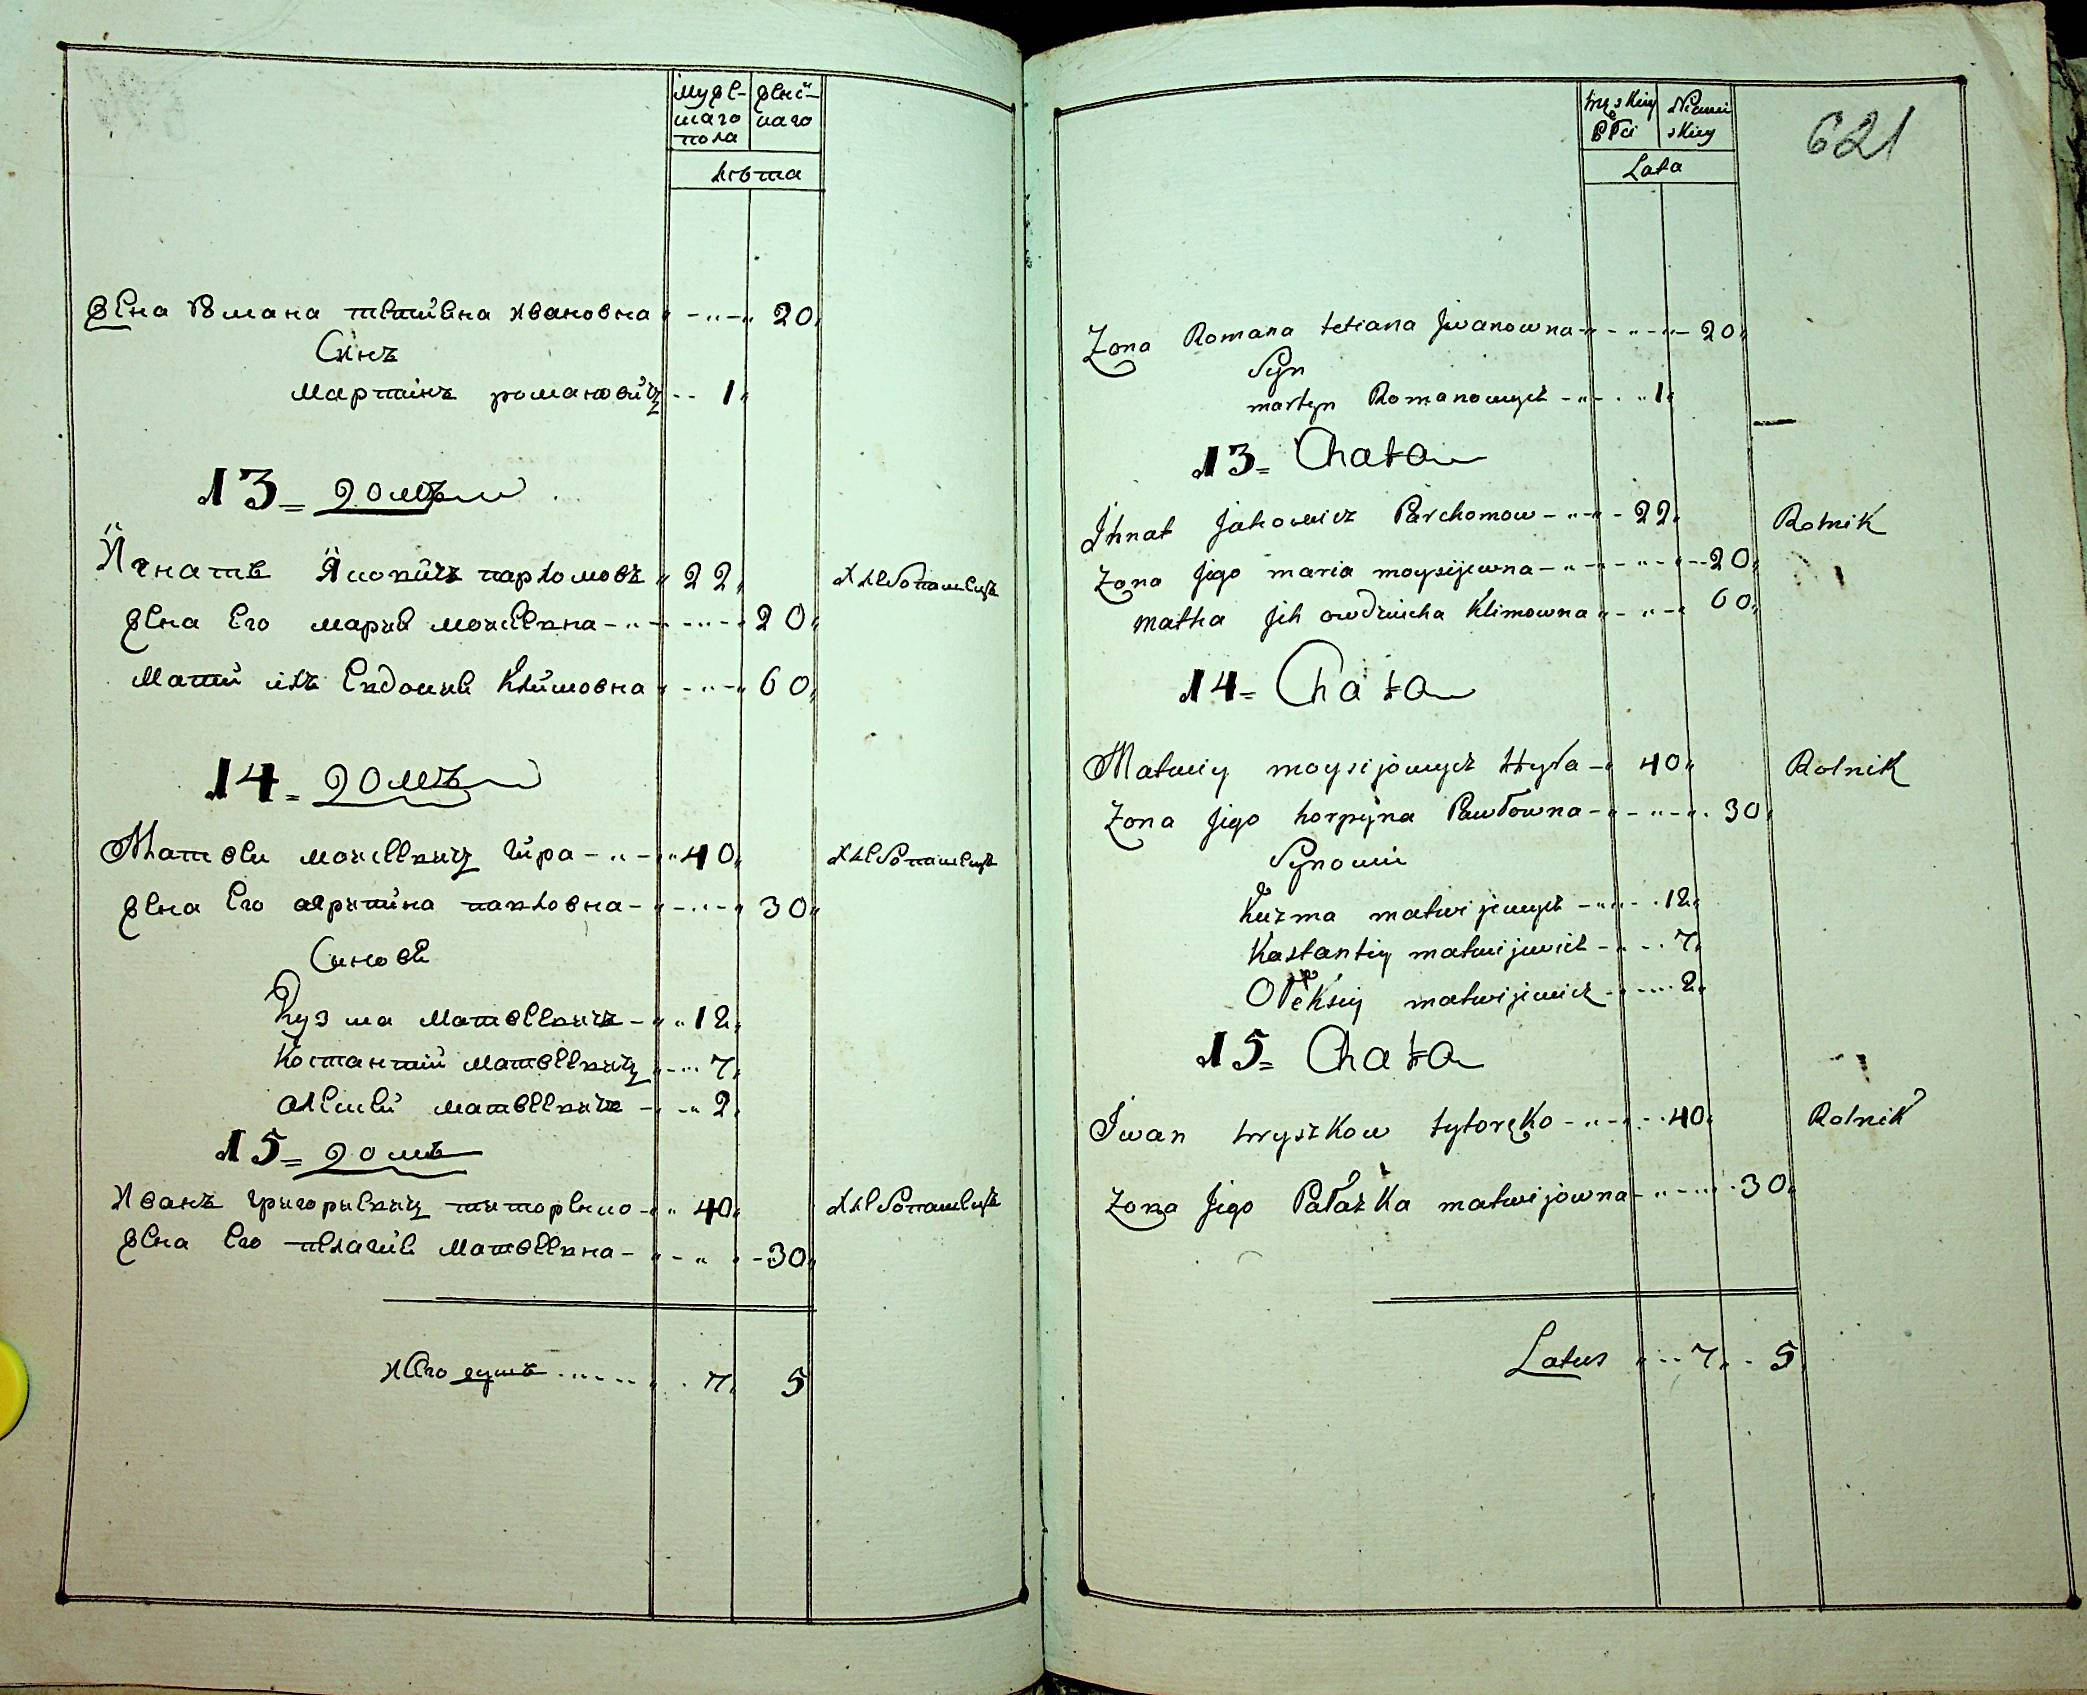 мужескаго пола
женскаго
лѣта
жена Романа татиана Ивановна 20
Синъ
Мартинъ романовичъ 1
13 = домъ
Игнатъ Яковичъ пархомовъ 22 хлебопашецъ
жена Его мария моисеевна 20
Мати ихъ Евдокия Климовна 60
14 = домъ
Матвеи моисеевичъ гира 40 хлебопашецъ
жена Его агрипина павловна 30
Синове
Кузма Матвеевичъ 12
Костантий Матвеевичъ 7
алексей матвеевичъ 2
15 = домъ
Иванъ григориевичъ титоренко 40 хлебопашецъ
жена Его пелагия Матвеевна 30
Итого душъ 7 5
męzkiey płci
Niewieskiey
Lata
621
Zona Romana tetiana Jwanowna 20
Syn
martyn Romanowycz 1
13 = Chata
Jhnat Jakowicz Parchomow 22 Rolnik
Zona Jego maria moysijewna 20
matka Jch owdziucha Klimowna 60
14 = Chata
Matwiy moysijowycz Hyra 40 Rolnik
Zona Jego horpyna Pawłowna 30
Synowie
Kuzma matwijewycz 12
Kastantiy matwijewicz 7
Ołeksiy matwijewicz 2
15 = Chata
Jwan hryszkow tytoręko 40 Rolnik
Zona Jego Pałazka matwijowna 30
Latus 7 5